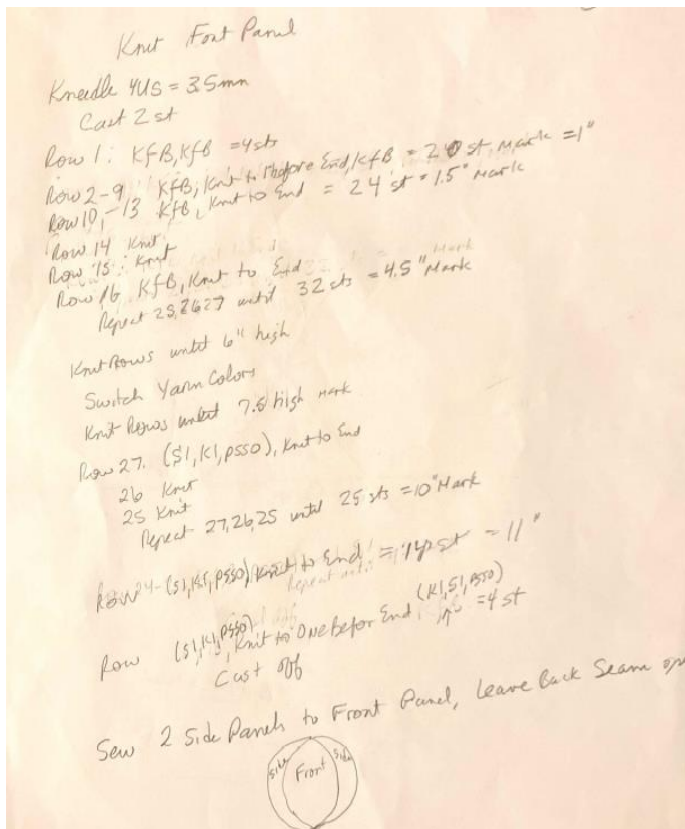 Knit Font Panel
Kneedle 4US = 3.5mm
Cast 2 st
Row 1: KfB, KfB = 4sts
Row 2-9 KfB, Knit to 1 before End, KfB = 20 st, Mark = 1"
Row 10,-13 KfB, Knit to End = 24 st = 1.5" Mark
Row 14 Knit
Row 15: Knit
Row 16 KfB, Knit to End
Repeat 27 until 32 sts = 4.5" Mark
Knit Rows until 6" high
Switch Yarn Colors
Knit Rows until 7.5 high Mark
Row 27. (S1, K1, PSSO), Knit to End
26 Knit
25 Knit
Repeat 27,26,25 until 25 sts = 10" Mark
Row 24- (S1, K1, PSSO) Knit to End = st = 11"
Row (S1, K1, PSSO), Knit to One Befor End, (K1, S1, PSSO) = 4 st
Cast off
Sew 2 Side Panels to Front Panel, Leave Back Seam
Side Front Side